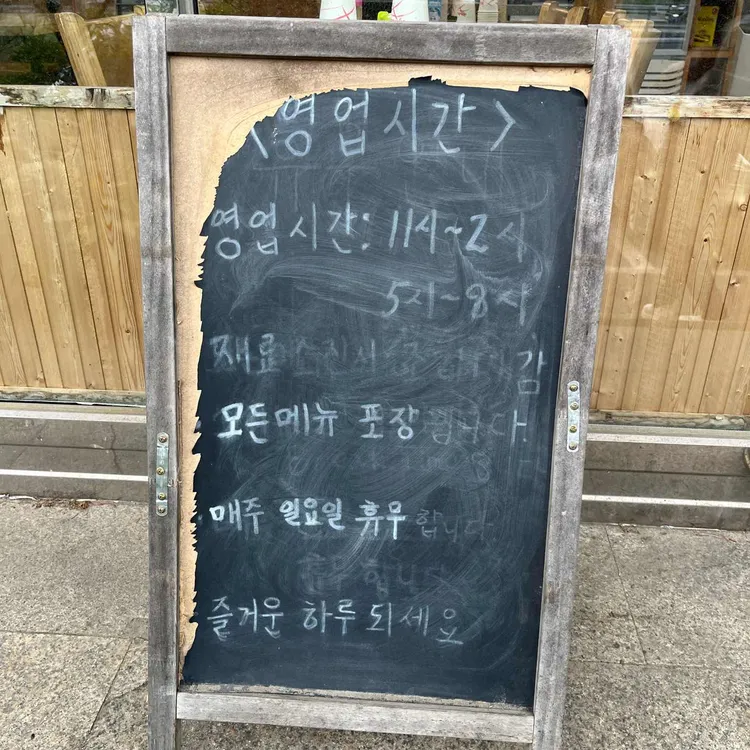 <영업시간>
영업시간: 11시~2시
5시~8시
재료
모든메뉴 포장됩니다.
매주 일요일 휴무합니다
휴무합니다
즐거운 하루되세요